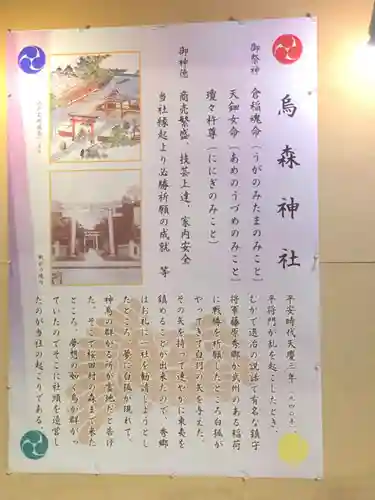 烏森神社
御祭神 倉稲魂命(うがのみたまのみこと)
天鈿女命(あめのうづめのみこと)
瓊々杵尊(ににぎのみこと)
御神徳 商売繁盛、技芸上達、家内安全
当社縁起より必勝祈願の成就 等
平安時代天慶三年(九四〇年)
平将門が乱を起こしたとき、
むかで退治の説話で有名な鎮守
将軍藤原秀郷が武州のある稲荷
に戦勝を祈願したところ白狐が
やってきて白羽の矢を与えた。
その矢を持って速やかに東夷を
鎮めることが出来たので、秀郷
はお礼に一社を勧請しようとし
たところ、夢に白狐が現れて、
神烏の群がる所が霊地だと告げ
た。そこで桜田村の森まで来た
ところ、夢想の如く烏が群がっ
ていたのでそこに社頭を造営し
たのが当社の起こりである。